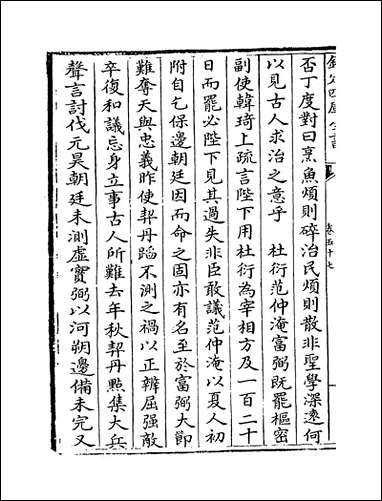 欽定四庫全書
卷五十七
否丁度對曰烹魚煩則碎治民煩則散非聖學深遠何
以見古人求治之意乎　杜衍范仲淹富弼既罷樞密
副使韓琦上疏言陛下用杜衍為宰相方及一百二十
日而罷必陛下見其過失非臣敢議范仲淹以夏人初
附自乞保邊朝廷因而命之固亦有名至於富弼大節
難奪天與忠義昨使契丹蹈不測之禍以正辭屈强敵
卒復和議忘身立事古人所難去年秋契丹㸃集大兵
聲言討伐元昊朝廷未測虛實弼以河朔邊備未完又